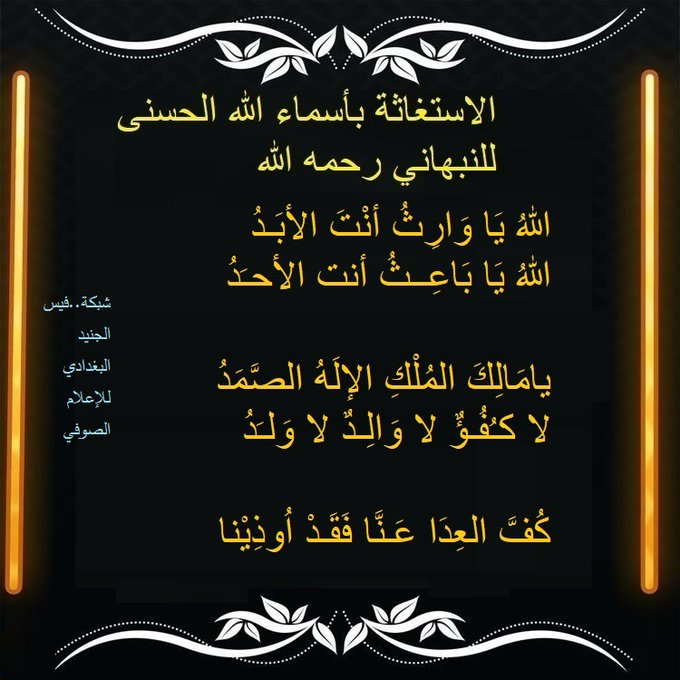 الاستغاثة بأسماء الله الحسنى
للنبهاني رحمه الله
اللهُ يَا وَارِثُ أنْتَ الأبَـدُ
اللهُ يَا بَاعِـــثُ أنت الأحـَدُ
يامَالِكَ المُلْكِ الإلَهُ الصَّمَدُ
لا كـُفُـؤٌ لا وَالِـدٌ لا وَلـَدُ
كُفَّ العِدَا عَـنَّا فَقَـدْ اُوذِيْنا
شبكة..فيس
الجنيد
البغدادي
للإعلام
الصوفي